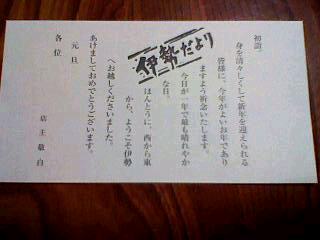 伊勢だより
初詣。
身を清々しくして新年を迎えられる
皆様に、今年がよいお年であり
ますよう祈念いたします。
今日が一年で最も晴れやか
な日。
ほんとうに、西から東
から、ようこそ伊勢
へお越しくださいました。
あけましておめでとうございます。
元旦
各位
店主敬白